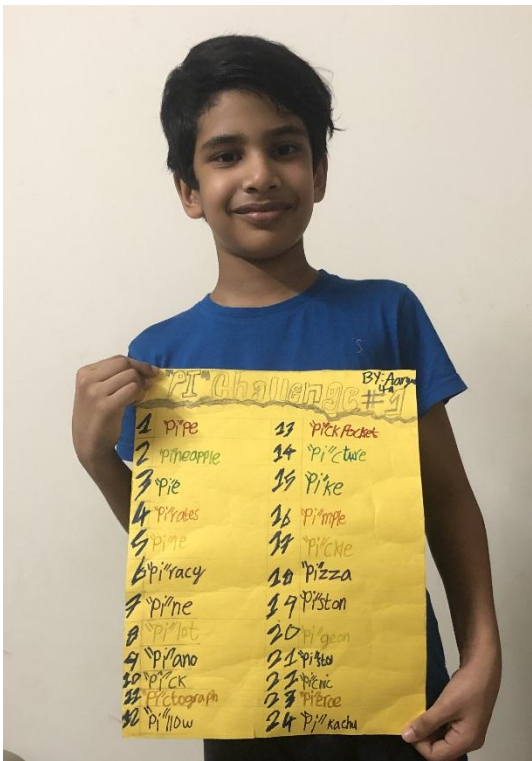 "PI" Challenge #1
BY: Aarya
4a
1 "Pi"pe
2 "Pi"neapple
3 "Pi"e
4 "Pi"rates
6 "Pi"racy
7 "Pi"ne
8 "Pi"lot
9 "Pi"ano
10 "Pi"ck
11 "Pi"ctograph
12 "Pi"llow
13 "Pi"ckPocket
14 "Pi"cture
15 "Pi"ke
16 "Pi"mple
17 "Pi"ckle
18 "Pi"zza
19 "Pi"ston
20 "Pi"geon
21 "Pi"stol
22 "Pi"cnic
23 "Pi"erce
24 "Pi"kachu